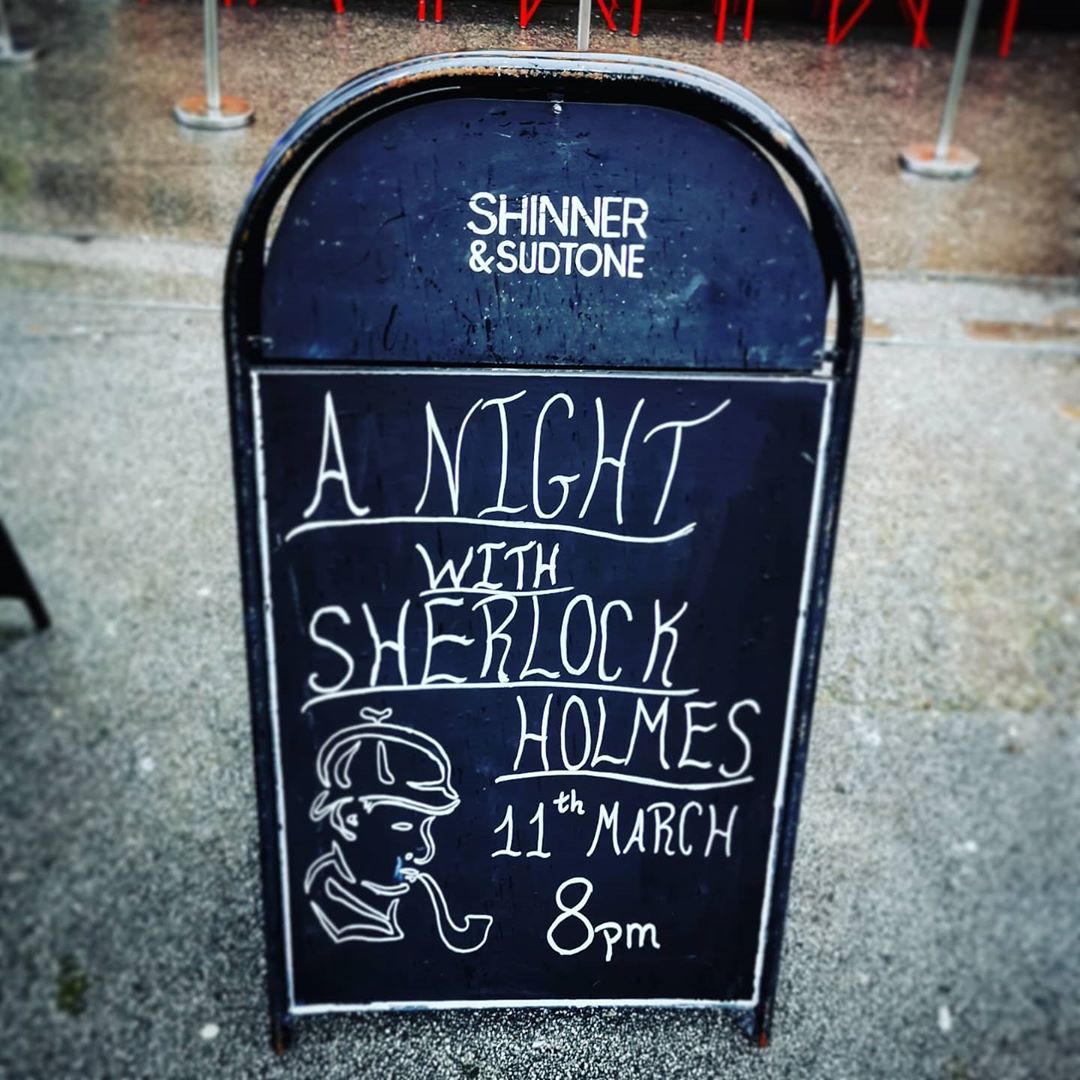 SHINNER
&SUDTONE
A NIGHT
WITH
SHERLOCK
HOLMES
11th MARCH
8pm